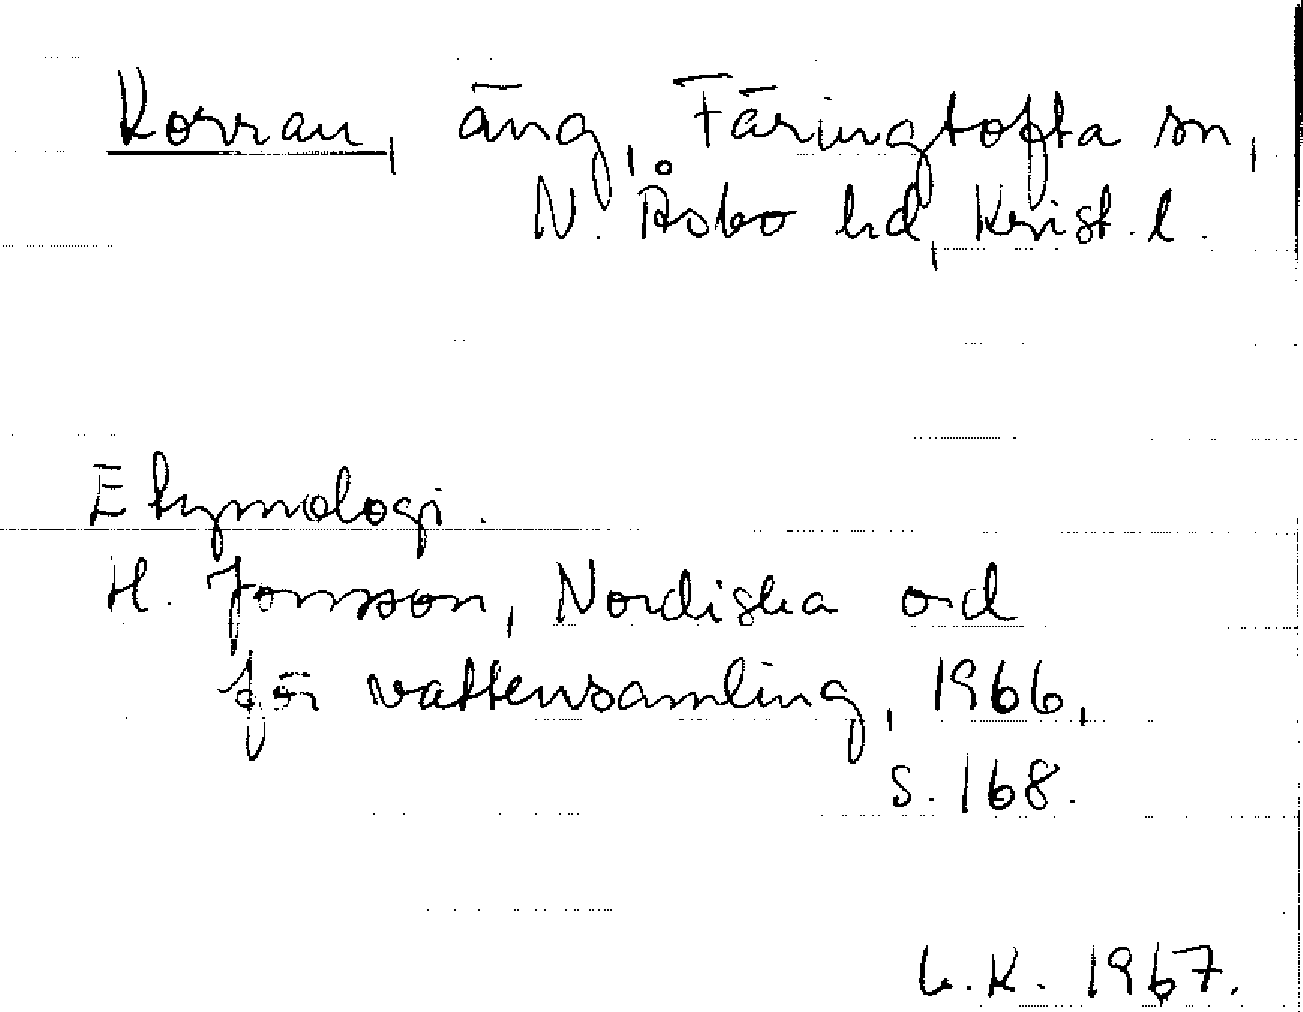 Korran, äng, Färingtofta sn,
N. Åsbo hd, Krist. l.
Etymologi.
H. Jonsson, Nordiska ord
för vattensamling, 1966,
s. 168.
L.K. 1967.